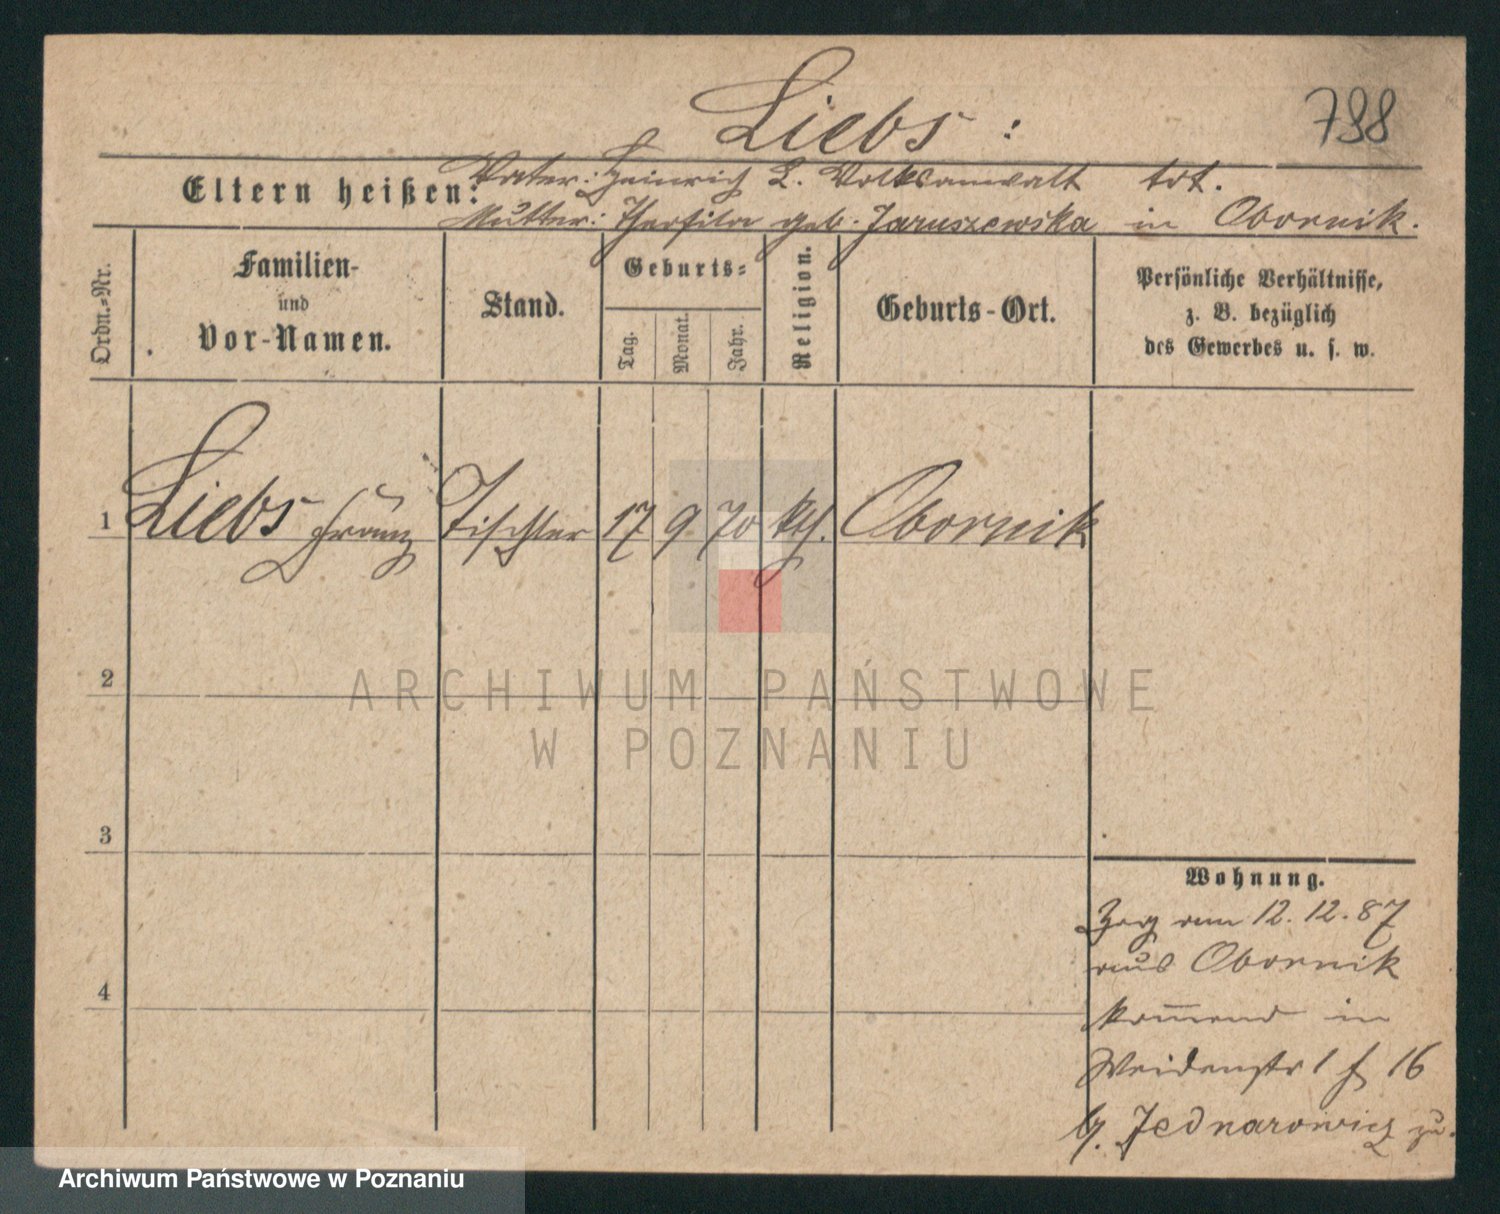 Liebs :
798
Eltern heißen: Vater: Heinrich L. Volksanwalt tot.
Mutter: Theofila geb. Jaruszewska in Obornik.
Ordn.-Nr.
Familien-
und
Vor-Namen.
Stand.
Geburts-
Tag.
Monat.
Jahr.
Religion.
Geburts-Ort.
Persönliche Verhältnisse,
z. B. bezüglich
des Gewerbes u. s. w.
1 Liebs Franz Tischler 17 9 70 kth. Obornik
2
3
4
Wohnung.
Zog am 12.12.87
aus Obornik
kom̄end in
Weidenstr 1 f 16
b. Jednarowicz zu.
ARCHIWUM PAŃSTWOWE
W POZNANIU
Archiwum Państwowe w Poznaniu